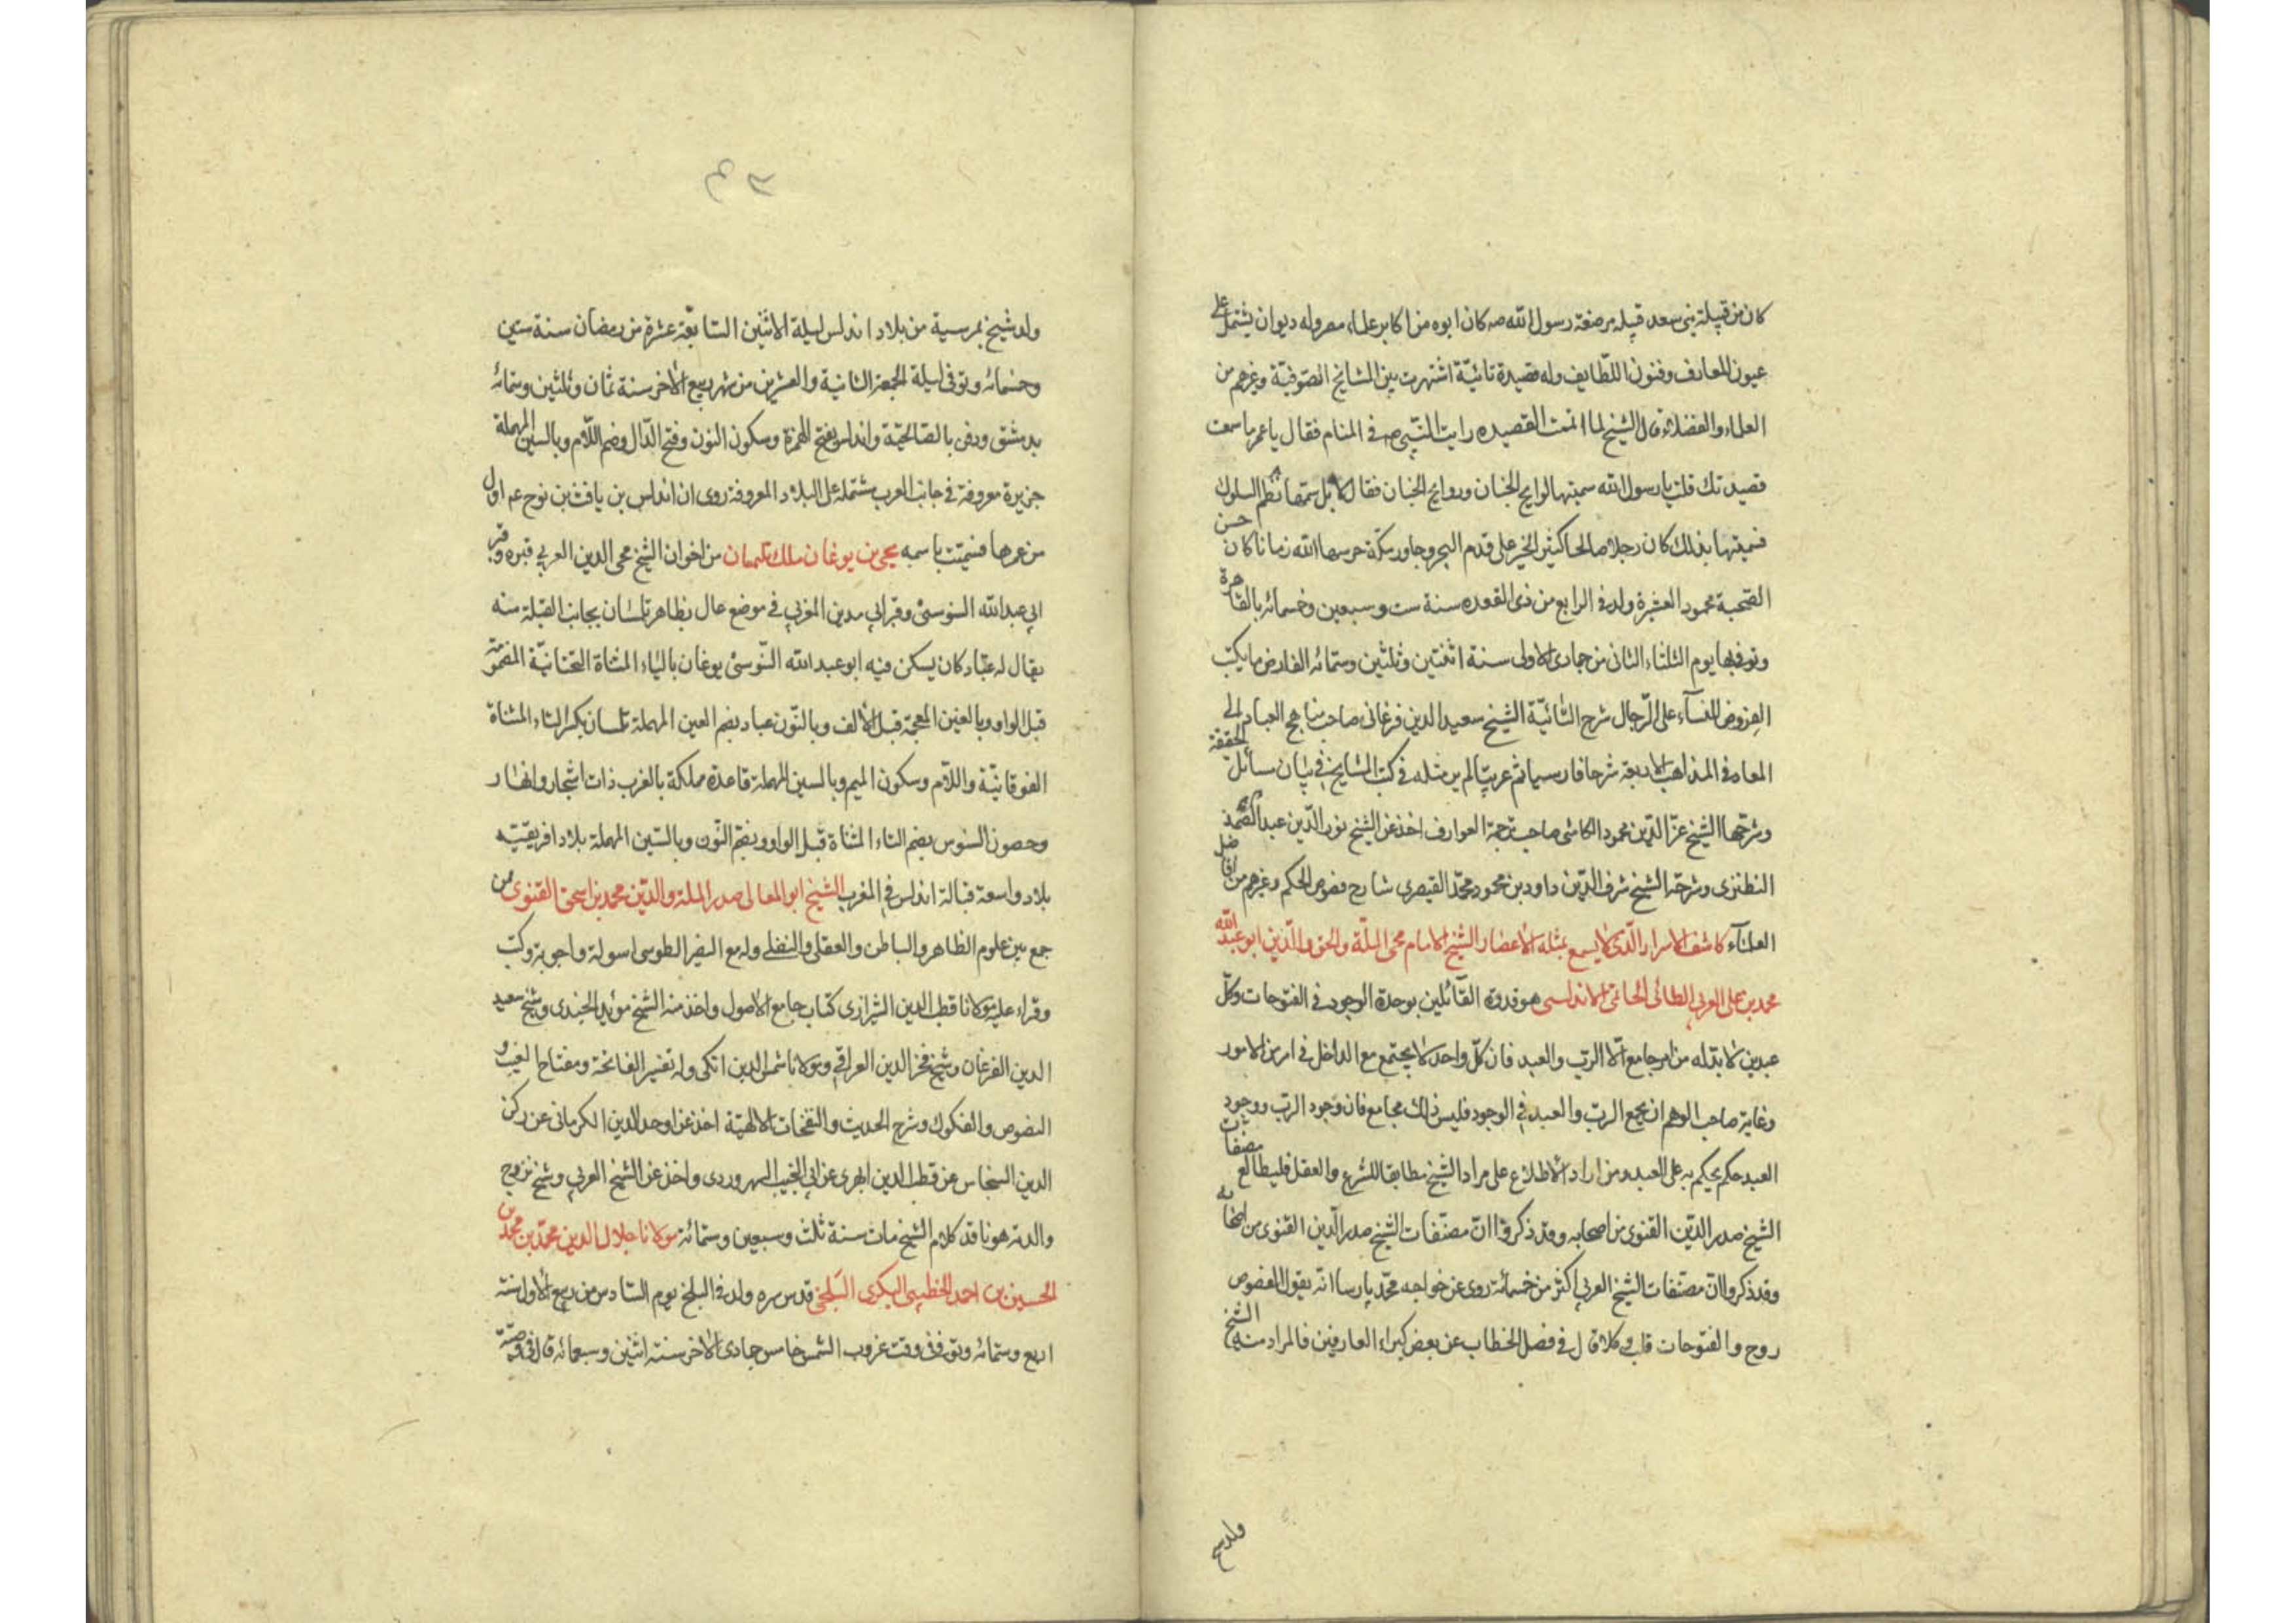 كان من قبيلة بنى سعد قبيله مرضعة رسول الله صه كان ابوه من اكابر علماء مصر وله ديوان يشتمل على
عيون المعارف وفنون اللطايف وله قصيدة تائيّة اشتهرت بين المشايخ الصّوفيّة وغيرهم من
العلماء والفضلاء قال الشيخ لما اتممت القصيده رايت النّبى صه فى المنام فقال يا عمر ما سميت
قصيدتك قلت يا رسول الله سميتها لوايح الجنان وروايح الجنان فقال لا بل سمّها نظم السلوك
فسميتها بذلك كان رجلا صالحا كثير الخير على قدم التجرد جاور بمكة حرسها الله زمانا كان حسن
الصّحبة محمود العشرة ولد فى الرابع من ذى القعده سنة ست وسبعين وخمسمائه بالقاهرة
وتوفى بها يوم الثلثاء الثانى من جمادى الاولى سنة اثنتين وثلثين وستمائه الفارض ما يكتب
الفروض للنسآء على الرّجال شرح التّائيّة الشيخ سعيد الدين فرغانى صاحب مناهج العباد الى
المعاد فى المذاهب الاربعة شرحا فارسيا ثم عربيّا لم ير مثله فى كتب المشايخ فى بيان مسائل الحقيقة
وشرحها الشيخ عزّ الدّين محمود الكاشى صاحب ترجمة العوارف اخذ عن الشيخ نور الدّين عبد الصّمد
النطنزى وشرحه الشيخ شرف الدّين داود بن محمود محمّد القيصرى شارح فصوص الحكم وغيرهم من افاضل
العلمآء كاشف الاسرار الّذى لا يسمع بمثله الاعصار الشيخ الامام محى الملّة والحق والدّين ابو عبد الله
محمد بن على العربى الطائى الحاتمى الاندلسى هو قدوة القائلين بوحدة الوجود فى الفتوحات وكلّ
عبدين لا بد له من امر جامع الّا الرب والعبد فان كلّ واحد لا يجتمع مع الداخل فى امر من الامور
وغاية صاحب الوهم ان يجمع الربّ والعبد فى الوجود فليس ذلك بجامع فان وجود الربّ ووجود
العبد حكم يحكم به على العبد ومن اراد الاطلاع على مراد الشيخ مطابقا للشرع والعقل فليطالع مصنفات
الشيخ صدر الدّين القنوى من اصحابه وقد ذكروا انّ مصنّفات الشيخ صدر الدّين القنوى من اصحابه
وقد ذكروا انّ مصنّفات الشيخ العربى اكثر من خمسمائة روى عن خواجه محمّد پارسا انّه يقول الفصوص
روح والفتوحات قلب وكلا قال فى فصل الخطاب عن بعض كبراء العارفين فالمراد منه الشيخ
ولد شيخ
ولد شيخ بمرسية من بلاد اندلس ليلة الاثنين السّابعة عشرة من رمضان سنة ستين
وخمسمائه وتوفى ليلة الجمعة الثانية والعشرين من شهر ربيع الاخر سنة ثمان وثلثين وستمائه
بدمشق ودفن بالصّالحيّة واندلس بفتح الهمزة وسكون النون وفتح الدّال وضم اللّام وبالسين المهملة
جزيرة معروفة فى جانب العرب مشتملة على البلاد المعروفة روى ان اندلس بن يافث بن نوح عم اول
من عمرها فسميّت باسمه يحى بن يوغان ملك تلمسان من اخوان الشيخ محى الدين العربى قبره وقبر
ابى عبد الله السّنوسىّ وقبر ابى مدين المغربى فى موضع عال بظاهر تلمسان بجانب القبلة منه
يقال له عبّاد كان يسكن فيه ابو عبد الله التّوسىّ يوغان بالياء المثناة التحتانيّة المضمومة
قبل الواو وبالعين المعجمة قبل الألف وبالنّون عباد بضم العين المهملة تلمسان بكسر التاء المثناة
الفوقانيّة واللّام وسكون الميم وبالسين المهملة قاعدة مملكة بالغرب ذات اشجار وانهار
وحصون السّوس بضم التاء المثناة قبل الواو وبضمّ النّون وبالسّين المهملة بلاد افريقيّه
بلاد واسعة قبالة اندلس فى المغرب الشيخ ابو المعالى صدر الملة والدّين محمد بن اسحق القنوى ممن
جمع بين علوم الظاهر والباطن والعقلى والنقلى وله مع النصير الطوسى اسولة واجوبة وكتب
وقراء عليه مولانا قطب الدين الشيرازى كتاب جامع الاصول واخذ منه الشيخ مؤيد الجندى وشيخ سعيد
الدين الفرغان وشيخ فخر الدين العراقى ومولانا شمس الدين انكى وله تفسير الفاتحة ومفتاح الغيب و
النصوص والفكوك وشرح الحديث والنفحات الالهيّة اخذ عن اوحد الدين الكرمانى عن ركن
الدين السنجاسى عن قطب الدين ابهرى عن ابى النجيب السهروردى واخذ عن الشيخ العربى وشيخ تزوج
والدته هو ناقد كلام الشيخ مات سنة ثلث وسبعين وستمائة مولانا جلال الدين محمّد بن محمّد بن
الحسين بن احمد الخطيبى البكرى البلخى قدس سره ولد فى البلخ يوم السّادس من ربيع الأول سنة
اربع وستمائه وتوفى فى وقت غروب الشمس خامس جمادى الاخر سنة اثنين وسبعمائه قال فى وصيّته